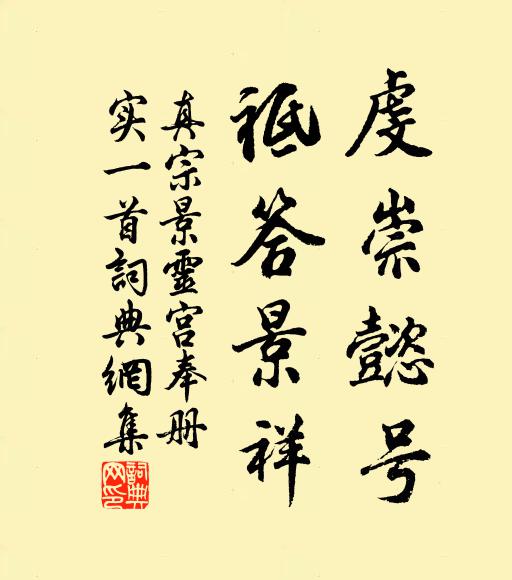 虔崇懿号
祗答景祥
真宗景靈宫奉册
实一首詞典網集
詞典
网印